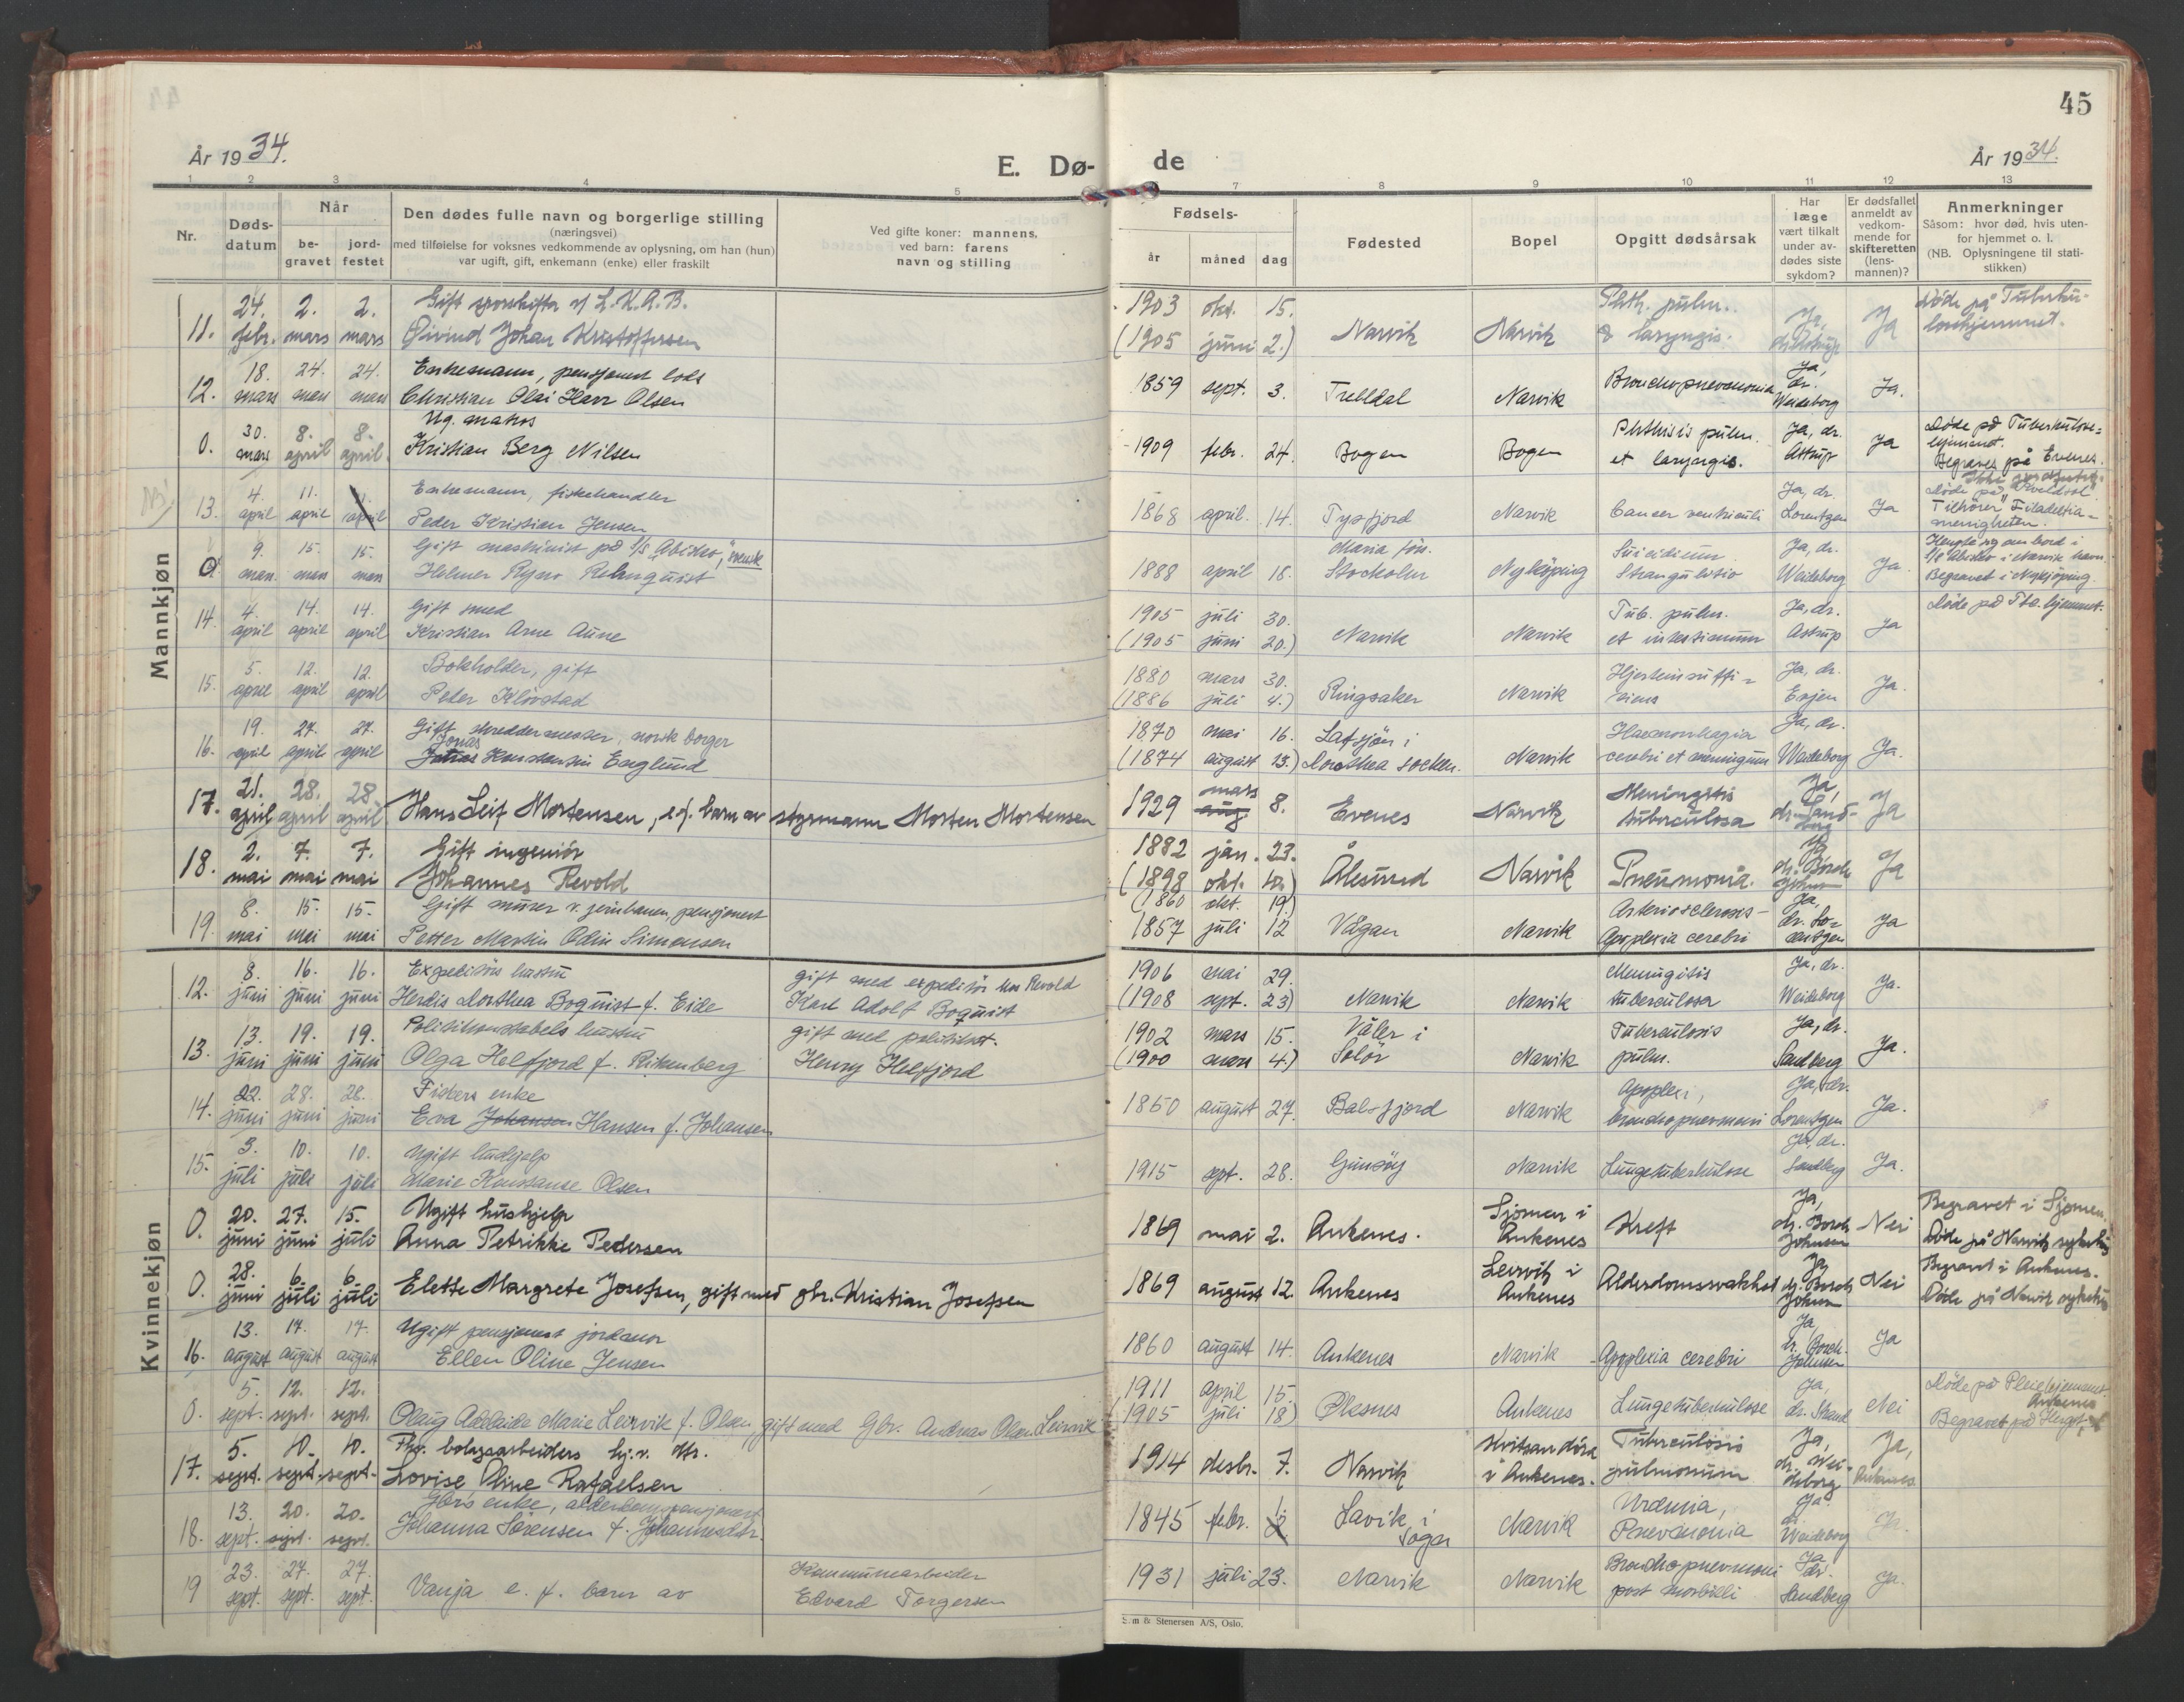 45
År 1934.
E. Dø-
de
År 1934.
1 2 3 4 5 7 8 9 10 11 12 13
Nr.
Døds-
datum
Når
be-
gravet
jord-
festet
Den dødes fulle navn og borgerlige stilling
(næringsvei)
med tilføielse for voksnes vedkommende av oplysning, om han (hun)
var ugift, gift, enkemann (enke) eller fraskilt
Ved gifte koner: mannens,
ved barn: farens
navn og stilling
Fødsels-
år måned dag
Fødested
Bopel
Opgitt dødsårsak
Har
læge
vært tilkalt
under av-
dødes siste
sykdom?
Er dødsfallet
anmeldt av
vedkom-
mende for
skifteretten
(lens-
mannen)?
Anmerkninger
Såsom: hvor død, hvis uten-
for hjemmet o. l.
(NB. Oplysningene til stati-
stikken)
Mannkjøn
24. 2. 2. Gift v/ L.K.A.B. 1903 okt. 15. Phth. pulm. Døde på Tuberku-
11. febr. mars mars Øivind Johan Kristoffersen (1905 juni 2.) Narvik Narvik & laryngis. Ja, Ja losehjemmet.
18. 24. 24. Enkemann, pensjonert los Ja,
12. mars mars mars Christian Olai Harr Olsen 1859 sept. 3. Trelldal Narvik Bronchopneumonia dr. Weideborg Ja.
30. 8. 8. Ug. matros Phthisis pulm. Ja, dr. Døde på Tuberkulose-
0. mars april april Kristian Berg Nilsen 1909 febr. 24. Bogen Bogen et laryngis. Astrup Ja hjemmet.
Begraves på Evenes.
4. 11. 11. Enkemann, fiskehandler Ja, dr. Døde på
13. april april april Peder Kristian Jensen 1868 april. 14. Tysfjord Narvik Cancer ventriculi Lorentzen Ja Tilhører "Filadelfia-
menigheten.
9. 15. 15. Gift maskinist på s/s "Abisko", svensk Maria förs. Suicidium Ja, dr. Hengte sig ombord i
0. mars mars mars Helmer Ryno Rehnquist 1888 april 18. Stockolm Nyköping Strangulatio Weideborg Ja. s/s Abisko i Narvik havn.
Begravet i Nykjöping.
4. 14. 14. Gift smed 1905 juli 30. Tub. pulm. Ja, dr. Døde på Tbc. hjemmet.
14. april april april Kristian Arne Aune (1905 juni 20.) Narvik Narvik et intestinum Astrup Ja
5. 12. 12. Bokholder, gift 1880 mars 30. Hjerteinsuffi- Ja, dr.
15. april april april Peter Kløvstad (1886 juli 4.) Ringsaker Narvik ciens Evjen Ja.
19. 27. 27. Gift skreddermester, norsk borger 1870 mai 16. Latsjön i Haemorrhagia Ja, dr.
16. april april april Jonas Konstantin Englund (1874 august 23.) Dorothea socken. Narvik cerebri et meningum Weideborg Ja.
21. 28. 28. mars Meningitis Ja,
17. april april april Hans Leif Mortensen, e.f. barn av styrmann Morten Mortensen 1929 aug 8. Evenes Narvik tuberculosa dr. Sand-
berg Ja
2. 7. 7. Gift ingeniör 1882 jan. 23. Ja
18. mai mai mai Johannes Revold (1898 okt. 10.) Ålesund Narvik Pneumonia. dr. Borch
Johnsen Ja
8. 15. 15. Gift murer v. jernbanen, pensjonert (1860 okt. 19.) Arteriosclerosis- Ja,
19. mai mai mai Petter Martin Odin Simonsen 1857 juli 12 Vågan Narvik Apoplexia cerebri dr. Lo-
rentzen Ja
Kvinnekjøn
8. 16. 16. Expeditörs hustru gift med expeditör hos Revold 1906 mai 29. Meningitis Ja, dr.
12. juni juni juni Herdis Dorthea Boquist f. Eide Karl Adolf Boquist (1908 sept. 23) Narvik Narvik tuberculosa Weideborg Ja.
13. 19. 19. Politikonstabels hustru gift med politikst. 1902 mars 15. Våler i Tuberculosis Ja, dr.
13. juni juni juni Olga Helfjord f. Henry Helfjord (1900 mars 4.) Solör Narvik pulm. Sandberg Ja.
22. 28. 28. Fiskers enke Apoplexi, Ja, dr.
14. juni juni juni Eva Johansen Hansen f. Johansen 1850 august 27. Balsfjord Narvik bronchopneumoni Lorentzen Ja.
3. 10. 10. Ugift hushjelp Ja, dr.
15. juli juli juli Marie Konstanse Olsen 1915 sept. 28. Gimsöy Narvik Lungetuberkulose Sandberg Ja.
20. 27. 15. Ugift hushjelp Sjomen i Ja, Begravet i Sjomen.
0. juni juni juli Anna Petrikke Pedersen 1869 mai 2. Ankenes. Ankenes Kreft dr. Borch
Johnsen Nei Døde på Narvik sykehus
28. 6. 6. Leirvik i Ja Begravet i Ankenes.
0. juni juli juli Elette Margrete Josefsen, gift med gbr. Kristian Josefsen 1869 august 12. Ankenes Ankenes Alderdomssvakhet dr. Borch
Johnsen Nei Døde på Narvik sykehus
13. 17. 17. Ugift pensjonert jordmor Ja,
16. august august august Ellen Oline Jensen 1860 august 14. Ankenes Narvik Apoplexia cerebri dr. Borch-
Johnsen Ja
5. 12. 12. 1911 april 15. Ja, Døde på Pleiehjemmet
Ankenes
0. sept. sept. sept. Olaug Adelaide Marie Leirvik f. Olsen, gift med Gbr. Andreas Olan Leirvik (1905 juli 18) Ankenes Lungetuberkulose dr. Nei Begravet på
5. 10. 10. Fhv. bolagsarbeiders hj.v. dtr. Tuberculosis Ja, Ja,
17. sept. sept. sept. Lovise Oline Rafaelsen 1914 desbr. 7. Narvik i Ankenes. pulmonum dr. Wei-
deborg Ankenes
13. 20. 20. Gbrs enke, alderdomspensjonert Urämia, Ja
18. sept. sept. sept. Johanna Sørensen f. Johannesdtr. 1845 febr. Lavik i
Sogn Narvik Pneumonia dr.
Weideborg Ja.
23. 27. 27. Kommunearbeider Bronchopneumoni Ja
19 sept. sept. sept. Vanja e. f. barn av Edvard Torgersen 1931 juli 23. Narvik Narvik post morbilli dr.
Sandberg Ja.
& Stenersen A/S, Oslo.